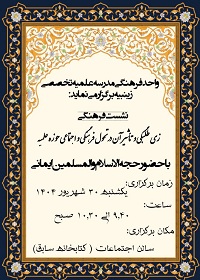 واحد فرهنگی مدرسه علمیه تخصصی
زینبیه برگزار می نماید:
نشست فرهنگی
زی طلبگی و تاثیر آن در تحول فرهنگی و اجتماعی حوزه علمیه
با حضور حجه الاسلام والمسلمین ایمانی
زمان برگزاری:
یکشنبه ۳۰ شهریور ۱۴۰۴
ساعت:
۹.۴۰ الی ۱۰.۳۰ صبح
مکان برگزاری:
سالن اجتماعات ( کتابخانه سابق)